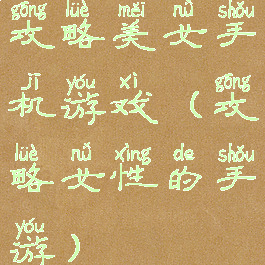 gōng lüè měi nǚ shǒu
攻略美女手
jī yóu xì gōng
机游戏(攻
lüè nǚ xìng de shǒu
略女性的手
yóu
游)